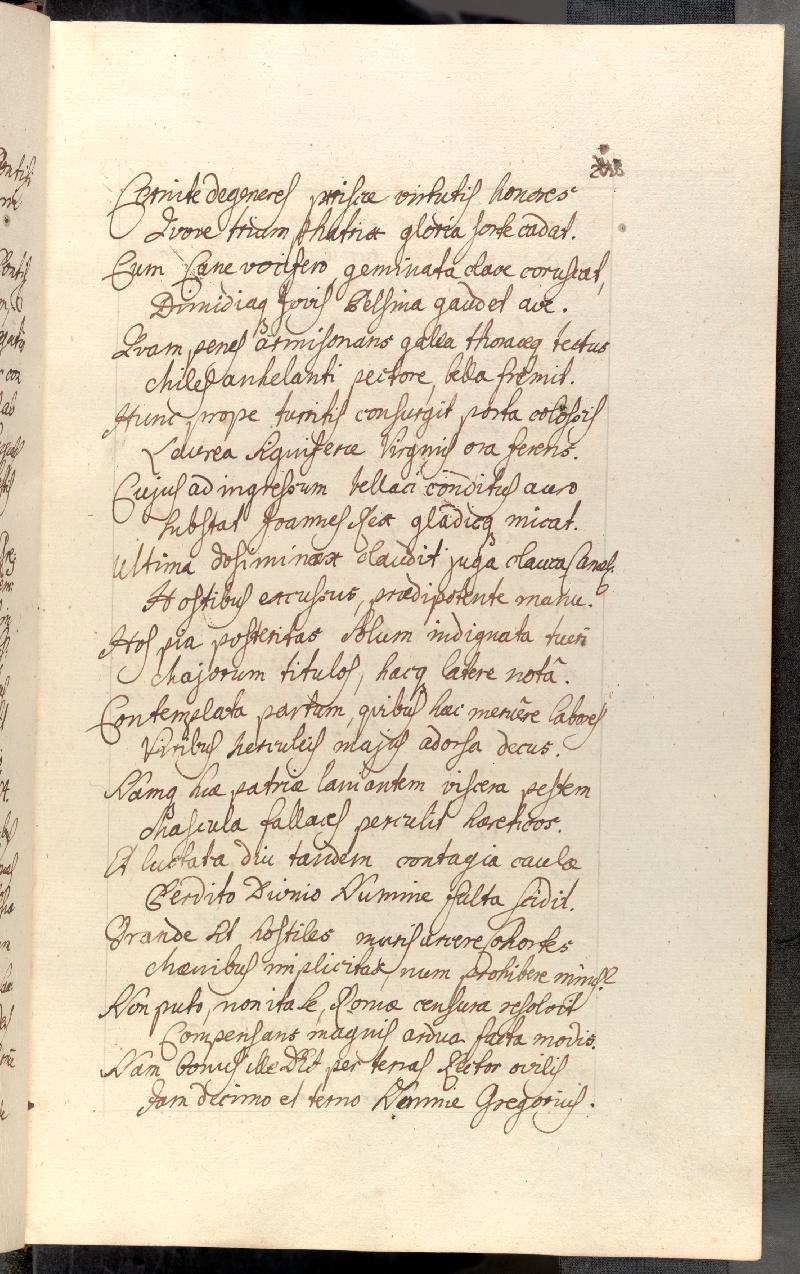 Cernite degeneres priscæ virtutis honores
Quove trium Patriæ gloria sorte cadat.
Cum Cane vocifero geminata clave coruscat,
Dimidiaq Jovis Celsina gaudet ave.
Quam penes armisonans galea thoraceq tectus
Miles anhelanti pectore, bella fremit.
Hunc prope turritis consurgit porta colossis
Laurea signiferæ Virginis ora ferens.
Cujus ad ingressum bellaci conditus auro
Substat Joannes Rex gladioq micat.
Ultima claudit juga
Hostibus excussus, prædipotente manu.
Hos pia posteritas solum indignata tueri
Majorum titulos, hacq latere notâ.
Contemplata partum, quibus hæc meruêre labores
Viribus herculeis majus adorsa decus.
Namq hæ patriæ laniantem viscera pestem
Mascula fallaces perculit hæreticos.
Et luctata diu tandem contagia caulæ
Perdito Divnio Numine fulta scidit.
Grande sit hostiles muris arcere cohortes
Mænibus implicitas, num prohibere minus?
Non puto, non ita se, Romæ censura resolvit
Compensans magnis ardua facta modis.
Nam bonus ille per terras Rector ovilis
Jam decimo et terno Nomine Gregorius.